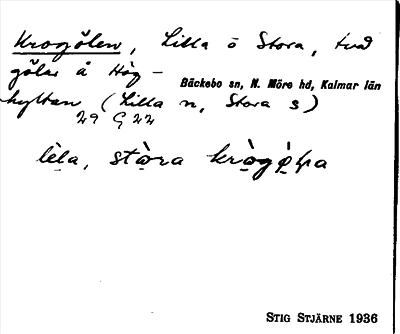 Krogölen, Lilla o Stora, två
gölar å Hög-
Bäckebo sn, N. Möre hd, Kalmar län
hyltan (Lilla n, Stora s)
29 G 22
STIG STJÄRNE 1936